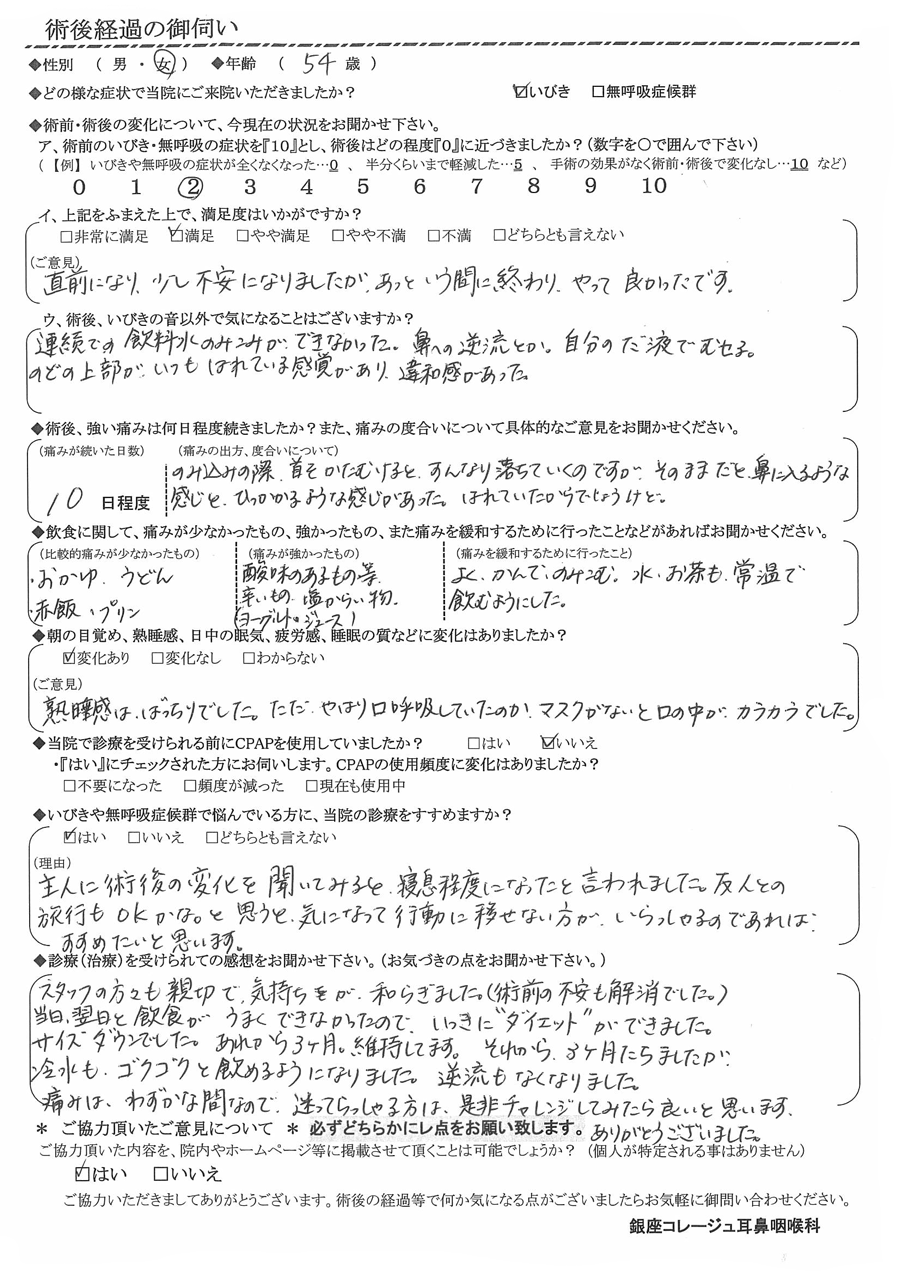 術後経過の御伺い
◆性別 ( 男 ・ 女 ) ◆年齢 ( 54 歳 )
◆どの様な症状で当院にご来院いただきましたか? ☑いびき □無呼吸症候群
◆術前・術後の変化について、今現在の状況をお聞かせ下さい。
ア、術前のいびき・無呼吸の症状を『10』とし、術後はどの程度『0』に近づきましたか?(数字を〇で囲んで下さい)
(【例】 いびきや無呼吸の症状が全くなくなった…0 、 半分くらいまで軽減した…5 、 手術の効果がなく術前・術後で変化なし…10 など)
0 1 2 3 4 5 6 7 8 9 10
イ、上記をふまえた上で、満足度はいかがですか?
□非常に満足 ☑満足 □やや満足 □やや不満 □不満 □どちらとも言えない
(ご意見)
直前になり、少し不安になりましたが、あっという間に終わり、やって良かったです。
ウ、術後、いびきの音以外で気になることはございますか?
連続での飲料水のみこみができなかった。鼻への逆流とか。自分のだ液でむせる。
のどの上部が、いつもはれている感覚があり、違和感があった。
◆術後、強い痛みは何日程度続きましたか?また、痛みの度合いについて具体的なご意見をお聞かせください。
(痛みが続いた日数) (痛みの出方、度合いについて)
のみ込みの際、首をかたむけると、すんなり落ちていくのですが、そのままだと、鼻に入るような
10 日程度 感じと、ひっかかるような感じがあった。はれていたからでしょうけど。
◆飲食に関して、痛みが少なかったもの、強かったもの、また痛みを緩和するために行ったことなどがあればお聞かせください。
(比較的痛みが少なかったもの) (痛みが強かったもの) (痛みを緩和するために行ったこと)
・おかゆ、うどん 酸味のあるもの等、 よく、かんで、のみこむ。水、お茶も、常温で
・赤飯・プリン 辛いもの、塩からい物、 飲むようにした。
(ヨーグルト・ジュース)
◆朝の目覚め、熟睡感、日中の眠気、疲労感、睡眠の質などに変化はありましたか?
☑変化あり □変化なし □わからない
(ご意見)
熟睡感は、ばっちりでした。ただ、やはり口呼吸していたのか、マスクがないと口の中が、カラカラでした。
◆当院で診療を受けられる前にCPAPを使用していましたか? □はい ☑いいえ
・『はい』にチェックされた方にお伺いします。CPAPの使用頻度に変化はありましたか?
□不要になった □頻度が減った □現在も使用中
◆いびきや無呼吸症候群で悩んでいる方に、当院の診療をすすめますか?
☑はい □いいえ □どちらとも言えない
(理由)
主人に術後の変化を聞いてみると、寝息程度になったと言われました。友人との
旅行もOKかな。と思うと、気になって行動に移せない方が、いらっしゃるのであれば、
すすめたいと思います。
◆診療(治療)を受けられての感想をお聞かせ下さい。(お気づきの点をお聞かせ下さい。)
スタッフの方々も親切で、気持ちをが、和らぎました。(術前の不安も解消でした。)
当日、翌日と飲食がうまくできなかったので、いっきに"ダイエット"ができました。
サイズダウンでした。あれから3ヶ月。維持してます。それから、3ヶ月たちましたが、
冷水も、ゴクゴクと飲めるようになりました。逆流もなくなりました。
痛みは、わずかな間なので、迷ってらっしゃる方は、是非チャレンジしてみたら良いと思います。
ありがとうございました。
* ご協力頂いたご意見について * 必ずどちらかにレ点をお願い致します。
ご協力頂いた内容を、院内やホームページ等に掲載させて頂くことは可能でしょうか? (個人が特定される事はありません)
☑はい □いいえ
ご協力いただきましてありがとうございます。術後の経過等で何か気になる点がございましたらお気軽に御問い合わせください。
銀座コレージュ耳鼻咽喉科